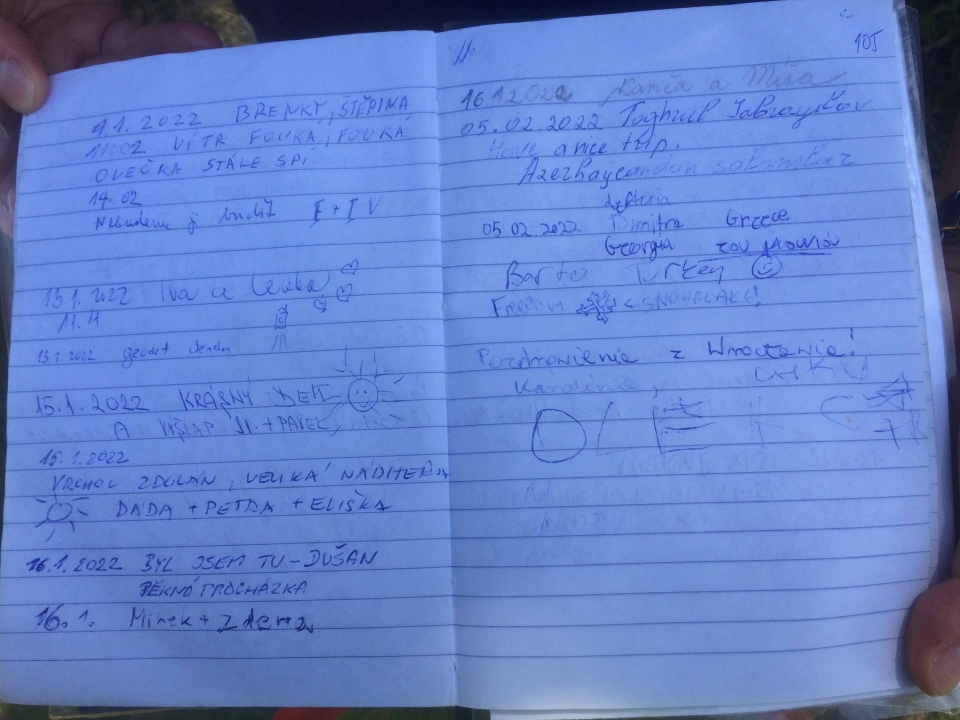 9.1.2022 BRENKY, ŠTĚPINA
11:02 VÍTR FOUKÁ, FOUKÁ,
OVEČKA STÁLE SPÍ
14.02
Nebudeme ji budit I + I V
13.1.2022 Iva a Lenka
11.11
13.1.2022
15.1.2022 KRÁSNÝ DEN
A VÝŠLAP + PAVEL
15.1.2022
VRCHOL ZDOLÁN, VELIKÁ NÁDHERA
DÁDA + PETRA + ELIŠKA
16.1.2022 BYL JSEM TU - DUŠAN
PĚKNÁ PROCHÁZKA
16.1. Mirek + Zdena
105
16.1.2022 a Míša
05.02.2022 Toghrul Jabrayilov
Have a nice trip.
Azerbaycandan
05.02.2022 Dimitra Greece
Georgia
Barto Turkey
Freedom < SNOWFLAKE!
Pozdrowienia z Wrocławia!